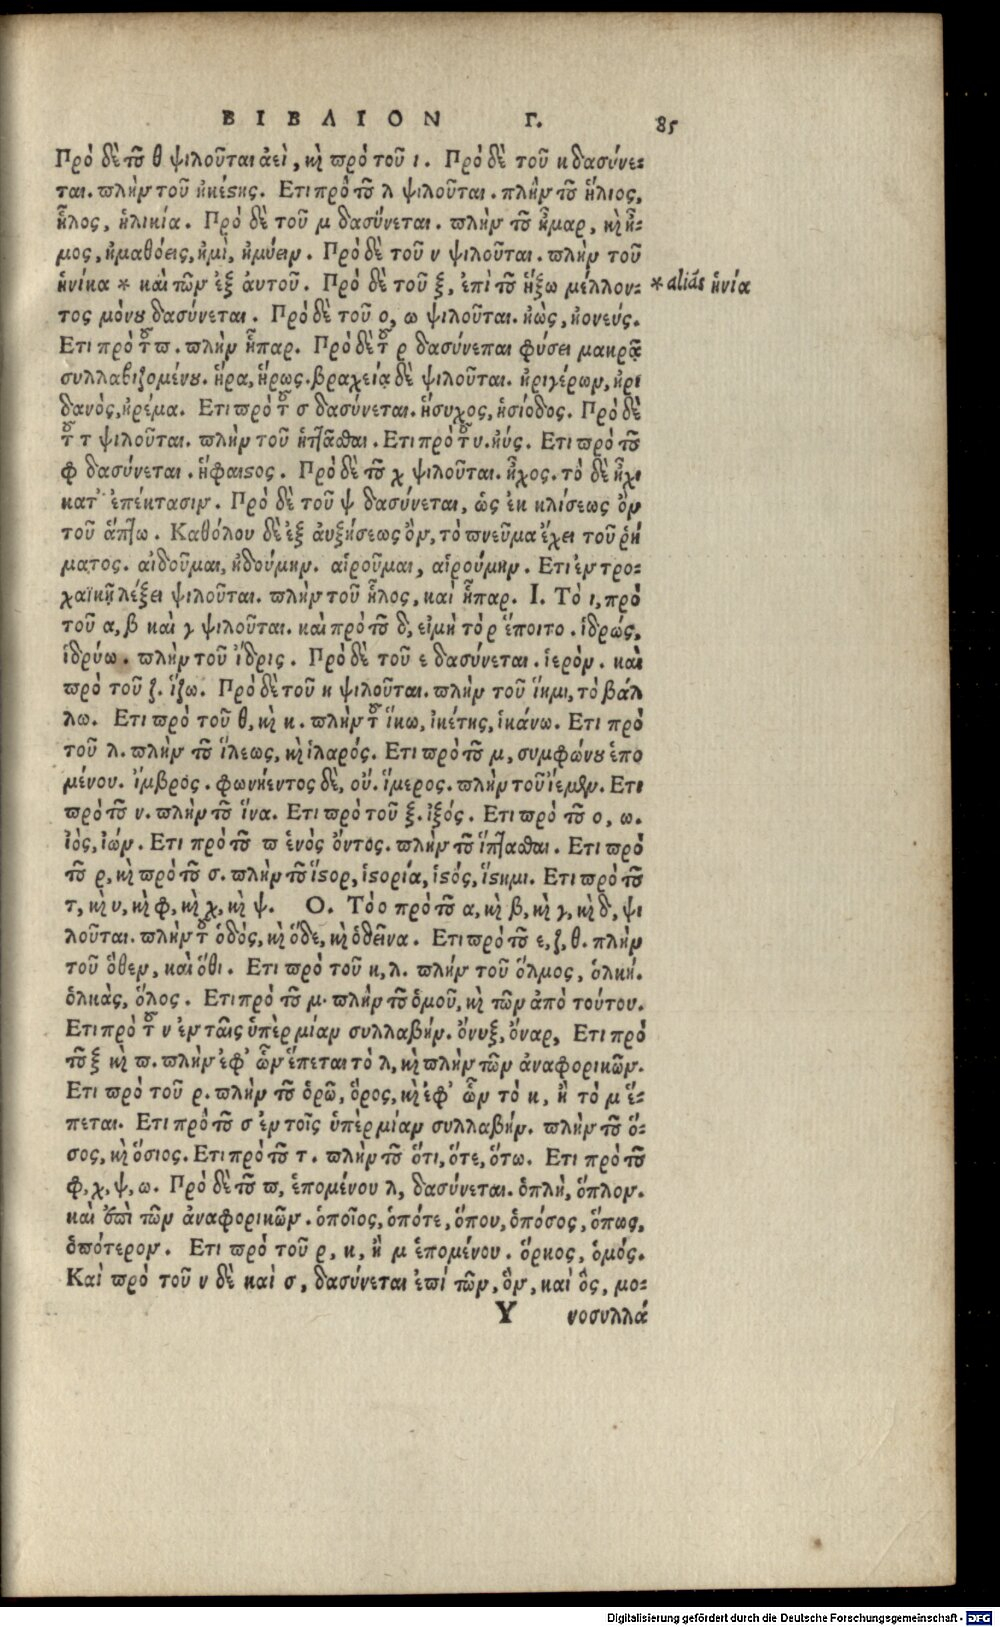 ΒΙΒΛΙΟΝ Γ. 85
Πρὸ δὲ τοῦ θ ψιλοῦται ἀεὶ, καὶ πρὸ τοῦ ι. Πρὸ δὲ τοῦ κ δασύνε-
ται. πλὴν τοῦ ἠκέστης. Ετι πρὸ τοῦ λ ψιλοῦται. πλὴν τοῦ ἥλιος,
ἧλος, ἡλικία. Πρὸ δὲ τοῦ μ δασύνεται. πλὴν τοῦ ἦμαρ, καὶ ἦ-
μος, ἠμαθόεις, ἠμὶ, ἠμύειν. Πρὸ δὲ τοῦ ν ψιλοῦται. πλὴν τοῦ
ἡνίκα * καὶ τῶν ἐξ ἀυτοῦ. Πρὸ δὲ τοῦ ξ, ἐπὶ τοῦ ἥξω μέλλον- * aliâs ἡνία
τος μόνου δασύνεται. Πρὸ δὲ τοῦ ο, ω ψιλοῦται. ἠὼς, ἠονεύς.
Ετι πρὸ τοῦ π. πλὴν ἧπαρ. Πρὸ δὲ τοῦ ρ δασύνεπαι φύσει μακρᾷ
συλλαβιζομένου. ἥρα, ἥρως. βραχείᾳ δὲ ψιλοῦται. ἠριγέρων, ἠρι
δανὸς, ἠρέμα. Ετι πρὸ τοῦ σ δασύνεται. ἥσυχος, ἡσίοδος. Πρὸ δὲ
τοῦ τ ψιλοῦται. πλὴν τοῦ ἡττᾶσθαι. Ετι πρὸ τοῦ υ. ἠύς. Ετι πρὸ τοῦ
φ δασύνεται. ἥφαιστος. Πρὸ δὲ τοῦ χ ψιλοῦται. ἦχος. τὸ δὲ ἧχι
κατ' ἐπέκτασιν. Πρὸ δὲ τοῦ ψ δασύνεται, ὡς ἐκ κλίσεως ὂν
τοῦ ἅπτω. Καθόλου δὲ ἐξ ἀυξήσεως ὂν, τὸ πνεῦμα ἔχει τοῦ ῥή
ματος. αἰδοῦμαι, ἠδούμην. αἱροῦμαι, αἱρούμην. Ετι ἐν τρο-
χαϊκῇ λέξει ψιλοῦται. πλὴν τοῦ ἧλος, καὶ ἧπαρ. Ι. Τὸ ι, πρὸ
τοῦ α, β καὶ γ ψιλοῦται. καὶ πρὸ τοῦ δ, εἰ μὴ τὸ ρ ἕποιτο. ἱδρώς,
ἱδρύω. πλὴν τοῦ ἴδρις. Πρὸ δὲ τοῦ ε δασύνεται. ἱερόν. καὶ
πρὸ τοῦ ζ. ἵζω. Πρὸ δὲ τοῦ κ ψιλοῦται. πλὴν τοῦ ἵημι, τὸ βάλ
λω. Ετι πρὸ τοῦ θ, καὶ κ. πλὴν τοῦ ἵκω, ἱκέτης, ἱκάνω. Ετι πρὸ
τοῦ λ. πλὴν τοῦ ἵλεως, καὶ ἱλαρός. Ετι πρὸ τοῦ μ, συμφώνου ἑπο
μένου. ἴμβρος. φωνήεντος δὲ, οὔ. ἵμερος. πλὴν τοῦ ἴεμεν. Ετι
πρὸ τοῦ ν. πλὴν τοῦ ἵνα. Ετι πρὸ τοῦ ξ. ἰξός. Ετι πρὸ τοῦ ο, ω.
ἰὸς, ἰών. Ετι πρὸ τοῦ π ἑνὸς ὄντος. πλὴν τοῦ ἵπτασθαι. Ετι πρὸ
τοῦ ρ, καὶ πρὸ τοῦ σ. πλὴν τοῦ ἵστορ, ἱστορία, ἱστός, ἵστημι. Ετι πρὸ τοῦ
τ, καὶ υ, καὶ φ, καὶ χ, καὶ ψ. Ο. Τὸ ο πρὸ τοῦ α, καὶ β, καὶ γ, καὶ δ, ψι
λοῦται. πλὴν τοῦ ὁδὸς, καὶ ὅδε, καὶ ὁδεῖνα. Ετι πρὸ τοῦ ε, ζ, θ. πλὴν
τοῦ ὅθεν, καὶ ὅθι. Ετι πρὸ τοῦ κ, λ. πλὴν τοῦ ὅλμος, ὁλκή.
ὁλκὰς, ὅλος. Ετι πρὸ τοῦ μ. πλὴν τοῦ ὁμοῦ, καὶ τῶν ἀπὸ τούτου.
Ετι πρὸ τοῦ ν ἐν ταῖς ὑπὲρ μίαν συλλαβήν. ὄνυξ, ὄναρ, Ετι πρὸ
τοῦ ξ καὶ π. πλὴν ἐφ' ὧν ἕπεται τὸ λ, καὶ πλὴν τῶν ἀναφορικῶν.
Ετι πρὸ τοῦ ρ. πλὴν τοῦ ὁρῶ, ὅρος, καὶ ἐφ' ὧν τὸ κ, ἢ τὸ μ ἕ-
πεται. Ετι πρὸ τοῦ σ ἐν τοῖς ὑπὲρ μίαν συλλαβήν. πλὴν τοῦ ὅ-
σος, καὶ ὅσιος. Ετι πρὸ τοῦ τ. πλὴν τοῦ ὅτι, ὅτε, ὅτω. Ετι πρὸ τοῦ
φ, χ, ψ, ω. Πρὸ δὲ τοῦ π, ἑπομένου λ, δασύνεται. ὁπλὴ, ὅπλον.
καὶ ἐπὶ τῶν ἀναφορικῶν. ὁποῖος, ὁπότε, ὅπου, ὁπόσος, ὅπως,
ὁπότερον. Ετι πρὸ τοῦ ρ, κ, ἢ μ ἑπομένου. ὅρκος, ὁρμός.
Καὶ πρὸ τοῦ ν δὲ καὶ σ, δασύνεται ἐπὶ τῶν, ὃν, καὶ ὃς, μο-
Y νοσυλλά
Digitalisierung gefördert durch die Deutsche Forschungsgemeinschaft - DFG